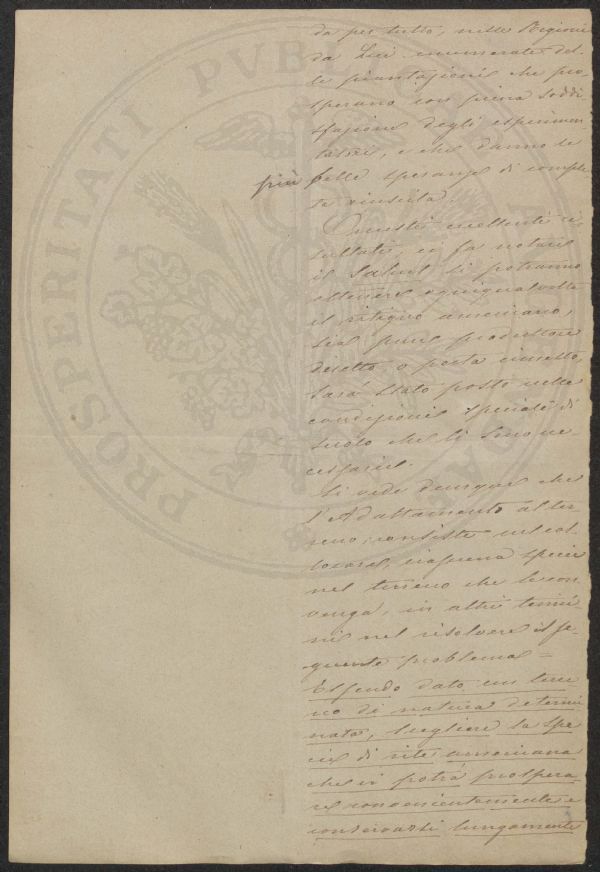 da per tutto, nelle Regioni
da Lui enumerate del-
le piantagioni che pro-
sperano con piena soddi-
sfazione degli esperimen-
tatori, e che danno le
più belle speranze di comple-
ta riuscita.
Questi eccellenti ri-
sultati, ci fa notare
il Sahut si potranno
ottenere ogniqualvolta
il vitigno americano,
sia pure produttore
diretto o porta innesto,
sarà stato posto nelle
condizioni speciali di
suolo che li sono ne-
cessarie.
Si vede dunque che
l'Adattamento al ter-
reno, consiste nel col-
locare, ciascuna specie
nel terreno che le con-
venga, in altri termi-
ni nel risolvere il se-
guente problema =
Essendo dato un terre-
no di natura determi-
nata, scegliere la spe-
cie di vite americana
che vi potrà prospera-
re convenientemente e
conservarsi lungamente
PROSPERITATI PVBL